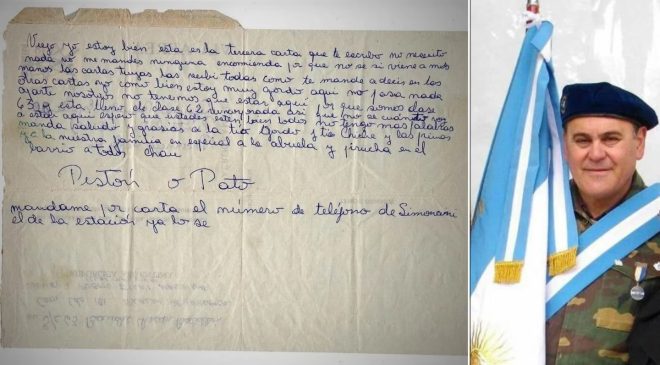 Viejo yo estoy bien esta es la tercera carta que te escribo no necesito
nada no me mandes ninguna encomienda por que no se si viene a mis
manos las cartas tuyas las recibi todas como te mande a decir en las
otras cartas yo como bien estoy muy gordo aqui no pasa nada
aparte nosotros no tenemos que estar aqui por que somos clase
63 y esta lleno de clase 62 asi que no se cuanto
a estar aqui espero que ustedes esten bien todos no tengo mas palabras
manda saludo y grasias a la tia Gordo y tio Chiche y las
y a la nuestra familia en especial a la abuela y pirucha en el
barrio a todos chau
Pistón o Pato
mandame por carta el número de teléfono de
el de la estación ya lo se